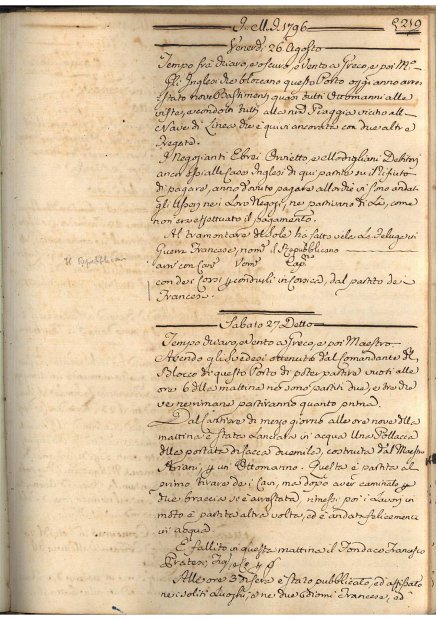 I. M. I. 1796
219
Venerdi, 26 Agosto
Tempo frà chiaro, e oscuro, e vento a Greco, e poi M.º
Gli Inglesi che bloccano questo Porto oggi anno arre
stato nove Bastimenti quasi tutti Ottomanni alla
vista, essendo tutti alla Spiaggia vicino all
Nave di Linea che è quivi ancorata con due altre
Fregate.
I Negozianti Ebrei Orvietto, e Modigliani Debitori
ancor essi alla Casa Inglesi di qui partite su il rifiuto
di pagare, anno dovuto pagare
gli Usseri nei Loro Negozi, nè partivano di Là, come
non era effettuato il pagamento.
Al tramontare del Sole ha fatto vela la Feluga di
Guerra Francese, nom.ª il Repubblicano
arm con Can Uom Cap.º
con dei Corsi p condurli in Corsica, dal partito de
Francesi.
Sabato 27. Detto
Tempo chiaro, e vento a Greco, e poi Maestro.
Avendo gli Svedesi ottenuto dal Comandante il
Blocco di questo Porto di poter partire vuoti alle
ore 6 della mattina ne sono partiti due, e tre che
ve ne rimane partiranno quanto prima
Dal Cantiere di mezzo giorno alle ore nove della
mattina è stata lanciata in acqua Una Pollacca
della portata di Sacca duemila, costruita dal Maestro
p un Ottomanno. Questa è partita al
primo tirare dei Cavi, ma dopo aver caminato p
due braccia vi è arrestata, rimessi poi i Lavori in
moto è partita altra volta, ed è andata felicemente
in acqua
È fallito in questa mattina il Fondaco Francesco
Alle ore 3 di sera è stato pubblicato, ed affissato
nei soliti Luoghi, e ne due Idiomi Francese, ed